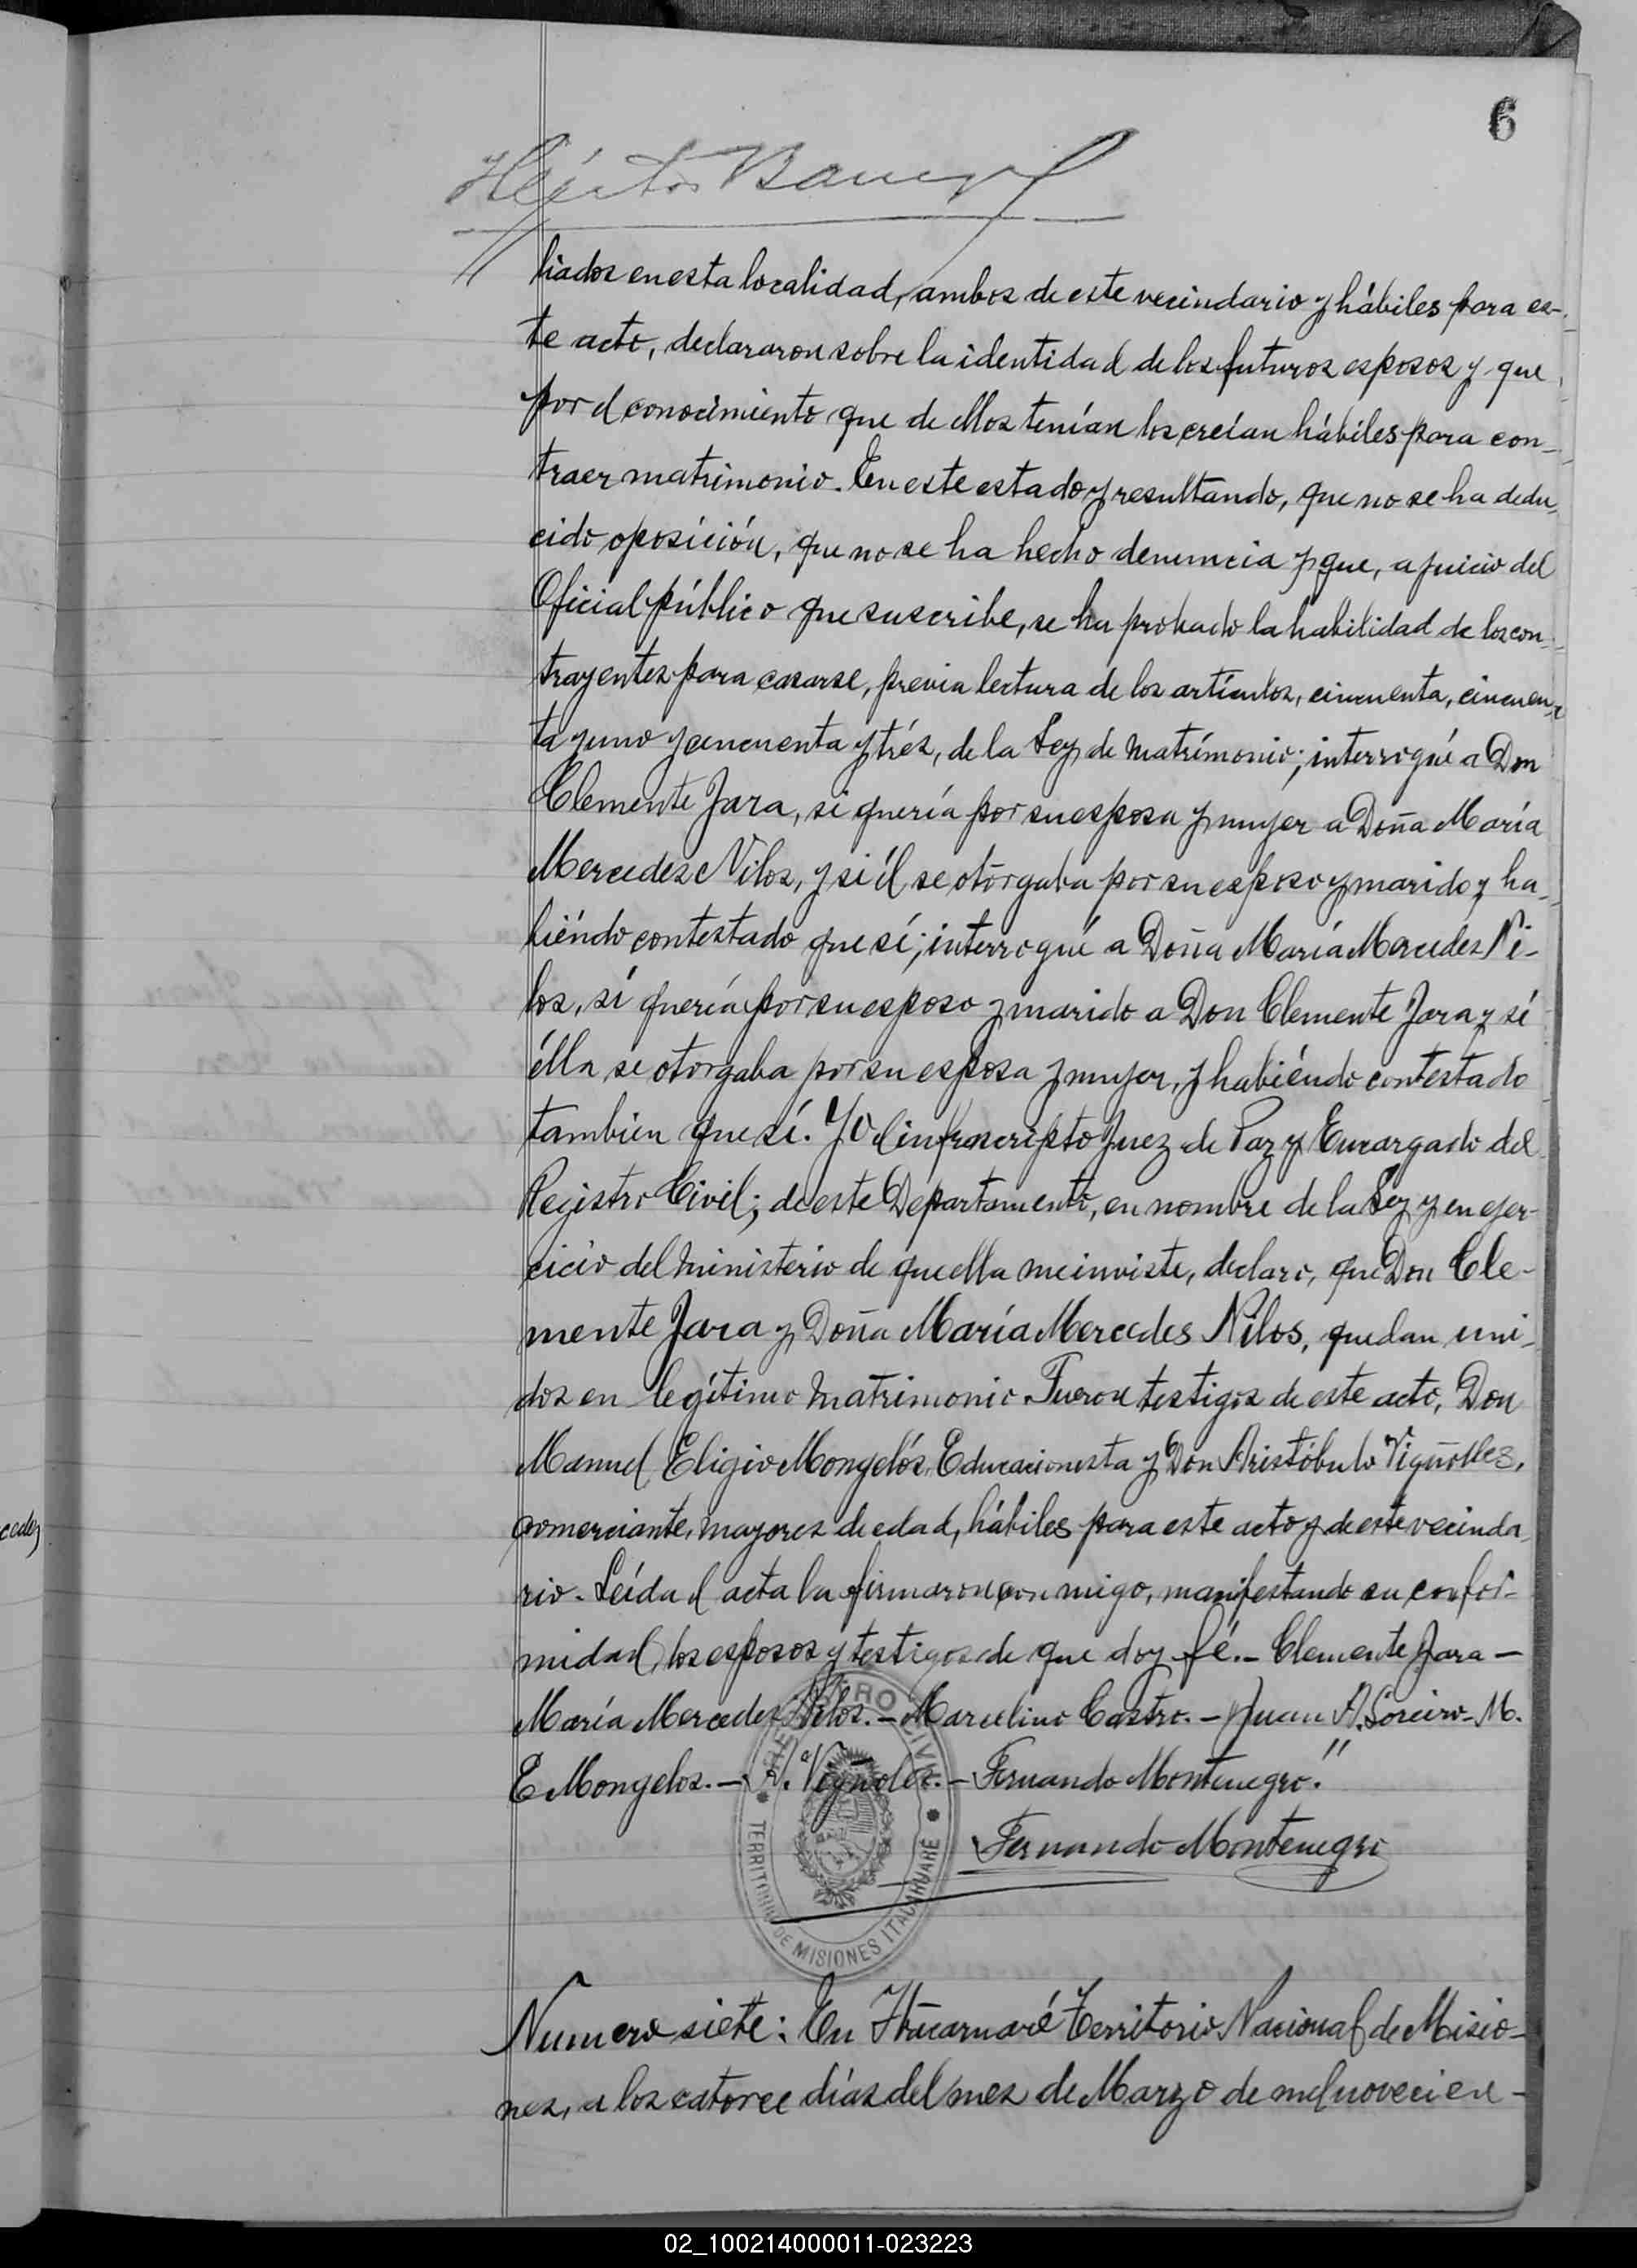 6
Héctor
liados en esta localidad, ambos de este vecindario y hábiles para es-
te acto, declararon sobre la identidad de los futuros esposos y que
por el conocimiento que de ellos tenían los creían hábiles para con-
traer matrimonio. En este estado y resultando, que no se ha dedu-
cido oposición, que no se ha hecho denuncia y que, a juicio del
Oficial público que suscribe, se ha probado la habilidad de los con-
trayentes para casarse, previa lectura de los artículos, cincuenta, cincuen-
ta y uno y cincuenta y trés, de la Ley de Matrimonio; interrogué a Don
Clemente Jara, si quería por su esposa y mujer a Doña María
Mercedes Nilos, y si él se otorgaba por su esposo y marido y ha-
biéndo contestado que sí; interrogué a Doña María Mercedes Ni-
los, sí quería por su esposo y marido a Don Clemente Jara y sí
élla se otorgaba por su esposa y mujer, y habiéndo contestado
tambien que sí. Yo el infrascripto Juez de Paz y Encargado del
Registro Civil; de este Departamento, en nombre de la Ley y en ejer-
cicio del Ministerio de que ella me inviste, declaro, que Don Cle-
mente Jara y Doña María Mercedes Nilos, quedan uni-
dos en legítimo Matrimonio. Fueron testigos de este acto, Don
Manuel Eligio Mongelós, Educacionista y Don Aristóbulo Vigñolles,
comerciante, mayores de edad, hábiles para este acto y de este vecinda
rio. Leída el acta la firmaron con migo, manifestando su confor-
midad, los esposos y testigos de que doy fé.- Clemente Jara -
María Mercedes Nilos.- Marcelino Castro.- Juan A. Loreiro - M.
E Mongelos. - A. Vigñoles. - Fernando Montenegro."
Fernando Montenegro
REGISTRO CIVIL
TERRITORIO DE MISIONES ITACARUARÉ
Numero siete: En Itacaruaré Territorio Nacional de Misio-
nes, a los catorce días del mes de Marzo de mil novecien-
cedes
02_100214000011-023223